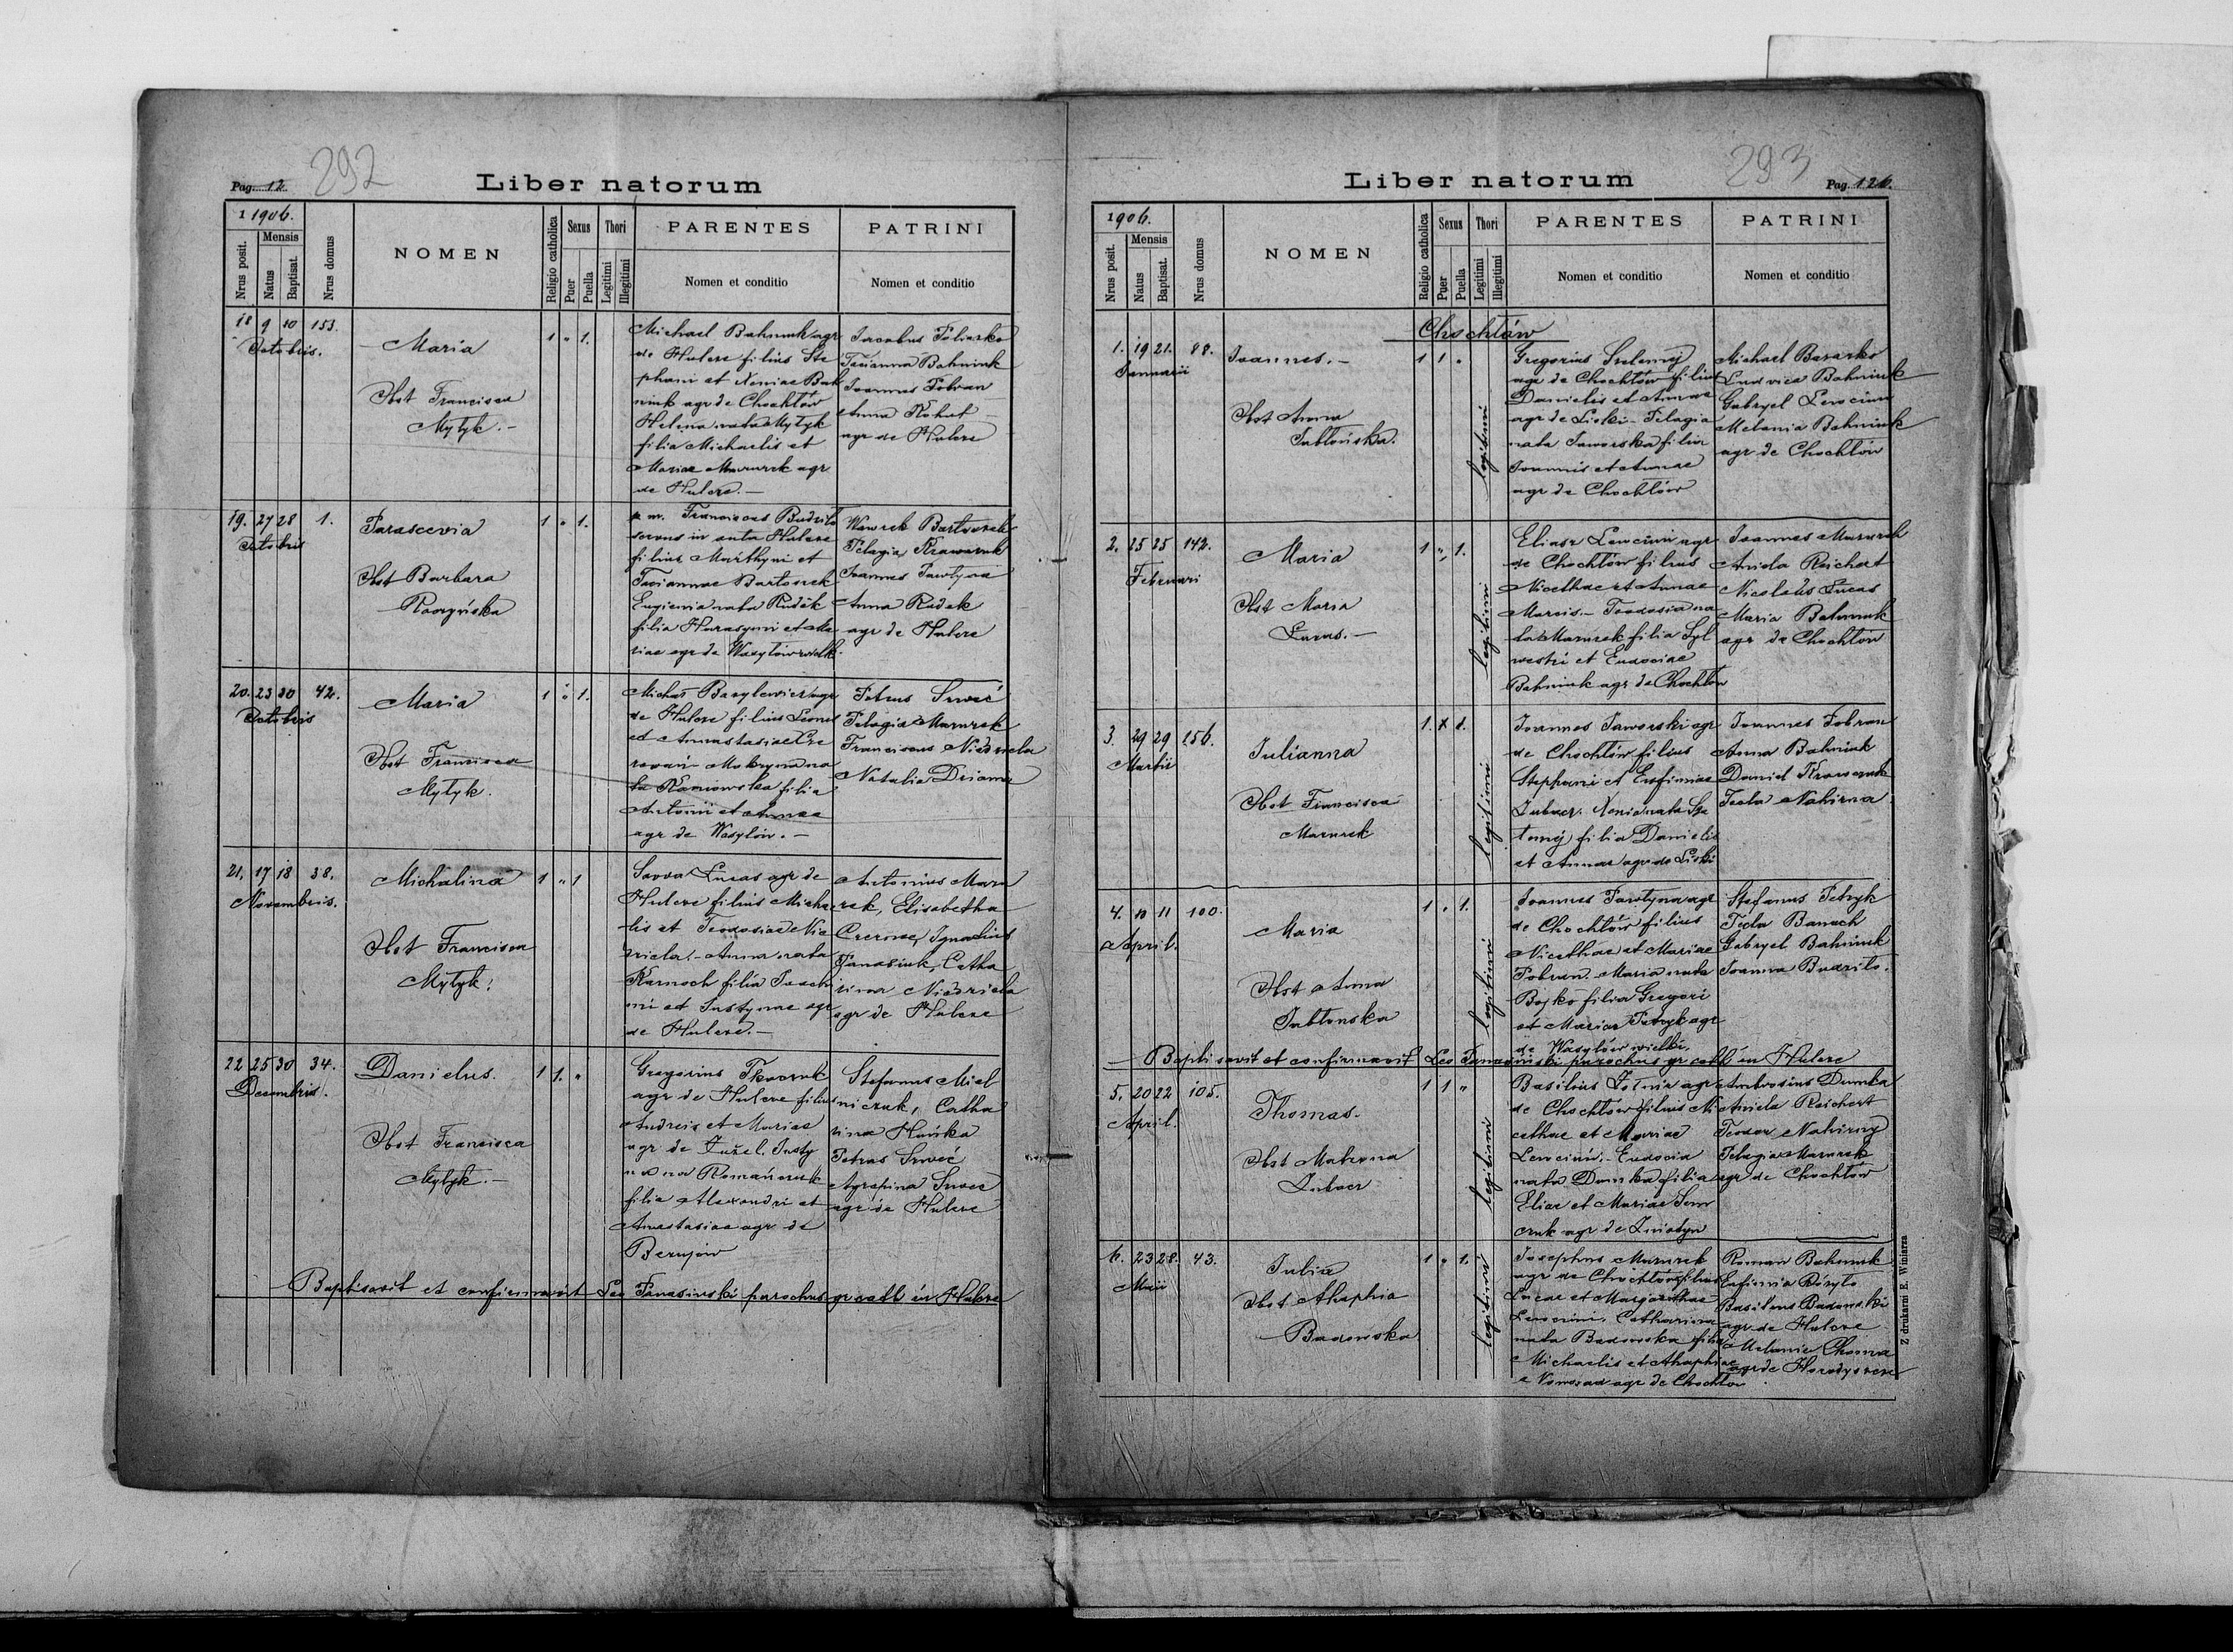 292
Pag. 12
Liber natorum
1 1906.
Nrus posit.
Mensis
Natus
Baptisat.
Nrus domus
NOMEN
Religio catholica
Sexus
Puer
Puella
Thori
Legitimi
Illegitimi
PARENTES
Nomen et conditio
PATRINI
Nomen et conditio
18 9 10 153.
Octobris.
Maria
Obst Francisca
Mytyk. -
1 " 1.
Michael Bahniuk agr
de Hulcze filius Ste
phani et Xeniae Bah
niuk agr de Chochłów
Helena nata Mytyk
filia Michaelis et
Mariae Mazurek agr
de Hulcze. -
Jacobus
Tacianna Bahniuk
Joannes Fobran
Anna Kohut
agr de Hulcze
19. 27 28 1.
Octobris
Parascevia
Obst Barbara
1 " 1.
Franciscus Budziło
servus in aula Hulcze
filius Marthyni et
Taciannae Bartoszek
Eugienia nata Rudek
filia Harasymi et Ma
riae agr de Wasylów wielk.
Wawrek Bartoszek
Pelagia Krawczuk
Joannes Pawłyna
Anna Rudek
agr de Hulcze
20. 23 30 42.
Octobris
Maria
Obst Francisca
Mytyk.
1 " 1.
Michał Bazylewicz agr
de Hulcze filius
et Annastasiae
Mokryna na
ta filia
Antonii et Annae
agr de Wasylów. -
Petrus Szweć
Pelagia Mazurek
Franciscus Niedziela
Natalia
21. 17 18 38.
Novembris.
Michalina
Obst Francisca
Mytyk.
1 " 1
Sawa Lucas agr de
Hulcze filius Micha
lis et Teodosiae Nie
dziela. - Anna nata
filia
et Justynae agr
de Hulcze. -
Antonius Mazu
rek, Elisabetha
Ignatius
Panasiuk, Catha
rina Niedziela
agr de Hulcze
22 25 30 34.
Decembris.
Danielus.
Obst Francisca
Mytyk. -
1 1. "
Gregorius Tkaczuk
agr de Hulcze filius
Andreis et Mariae
agr de Żużel. Justy
na na Romańczuk
filia Alexandri et
Anastasiae agr de
Stefanus Miel
niczuk, Catha
rina Hańka
Petrus Szweć
Agrepina Szweć
agr de Hulcze
Baptisavit et confirmavit Leo Panasiński parochus gr cath in Hulcze
293
Liber natorum
Pag. 126.
1906.
Nrus posit.
Mensis
Natus
Baptisat.
Nrus domus
NOMEN
Religio catholica
Sexus
Puer
Puella
Thori
Legitimi
Illegitimi
PARENTES
Nomen et conditio
PATRINI
Nomen et conditio
Chochłów
1. 19 21. 88.
Januarii
Joannes. -
Obst Anna
Jabłońska.
1 1 "
legitimi
Gregorius
agr de Chochłów filius
Danielis et Annae
agr de Liski - Pelagia
nata Jaworska filia
Joannis et Annae
agr de Chochłów
Michael
Ludvica Bahniuk
Gabryel Lewciun
Melania Bahniuk
agr de Chochłów
2. 25 25 142.
Februari
Maria
Obst Maria
Lucas. -
1 " 1.
legitimi
Eliasz Lewciun agr
de Chochłów filius
Nicethae et Annae
Marcis. - Teodosia na
ta Mazurek filia Syl
westri et Eudociae
Bahniuk agr de Chochłów
Joannes Mazurek
Aniela Reichert
Nicolaus Lucas
Maria Bahniuk
agr de Chochłów
3. 29 29 156.
Martii
Julianna
Obst Francisca
Mazurek
1. x 1.
legitimi
Joannes Jaworski agr
de Chochłów filius
Stephani et Eufimiae
Xenia nata
filia Danielis
et Annae agr de Liski
Joannes Fobran
Anna Bahniuk
Daniel Krawczuk
Tecla Nahirna
4. 10 11 100.
April.
Maria
Obst Anna
Jabłonska
1 " 1.
legitimi
Joannes Pawłyna agr
de Chochłów filius
Nicethae et Mariae
Fobran. Maria nata
Bojko filia Gregori
et Mariae Petryk agr
de Wasylów wielki.
Stefanus Petryk
Tecla Banach
Gabryel Bahniuk
Joanna Budziło.
Baptisavit et confirmavit Leo Panasiński parochus gr cath in Hulcze
5. 20 22 105.
April.
Thomas.
Obst Matrona
1 1 "
legitimi
Basilius agr
de Chochłów filius Ni
cethae et Mariae
Lewciun. - Eudocia
nata Dumka filia
Eliae et Mariae Sem
czuk agr de
Ambrosius Dumka
Aniela Reichert
Teodor Nahirny
Pelagia Mazurek
agr de Chochłów
6. 23 28. 43.
Maii
Julia
Obst Ahaphia
Badowska
1 " 1.
legitimi
Josephus Mazurek
agr de Chochłów filius
Lucae et Margarethae
Lewciun. Catharina
nata Badowska filia
Michaelis et Ahaphiae
agr de Chochłów
Roman Bahniuk
Eufimia
Basilius Badowski
agr de Hulcze
Melania
agr de Horodyszcze
Z drukarni E. Winiarza